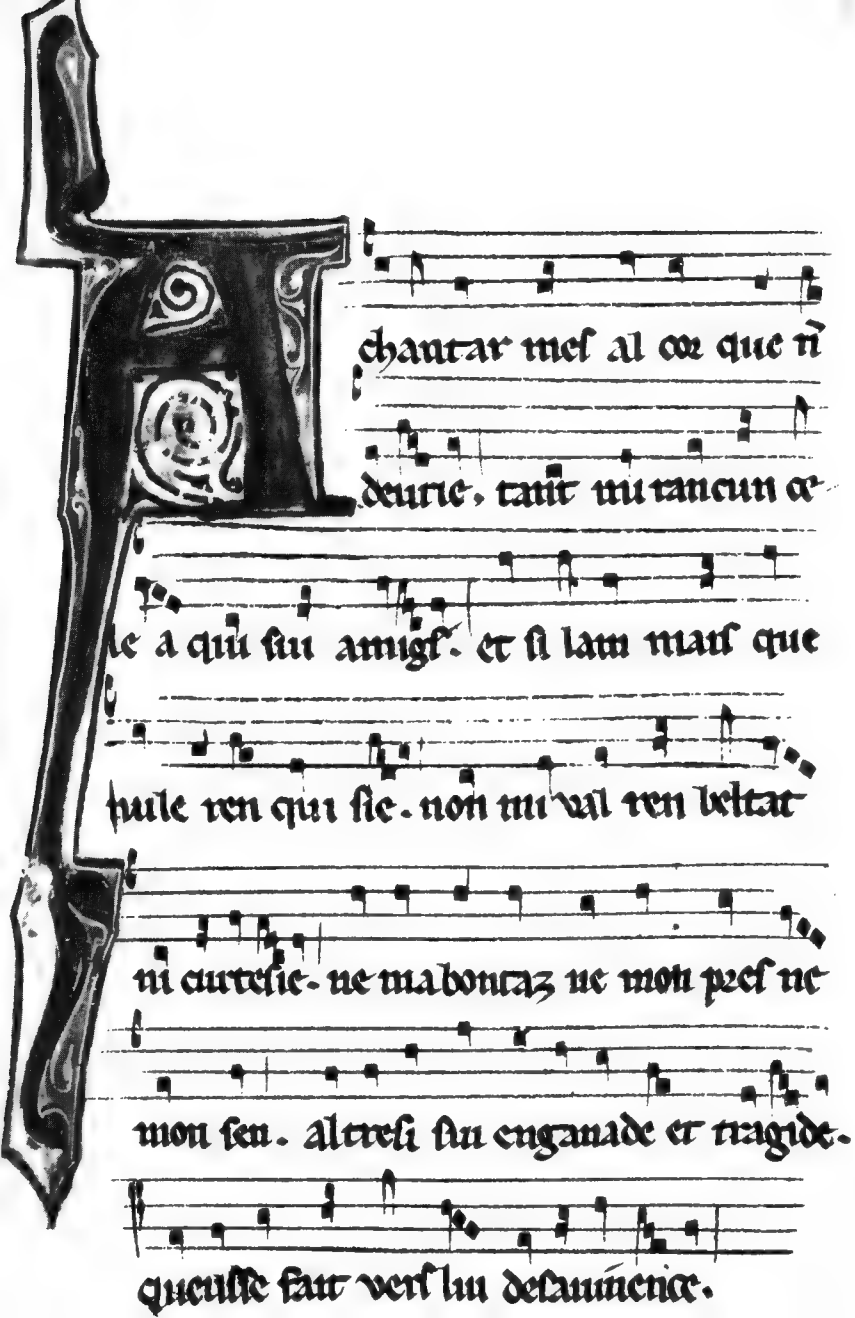 A chantar mes al cor que ñ
deurie. tant mi rancun ce
le a qui sui amigs. et si lam mais que
nule ren qui sie. non mi val ren beltat
ni curtesie. ne ma bontaz ne mon pres ne
mon sen. altresi sui enganade et tragide.
queusse fait vers lui desauinence.